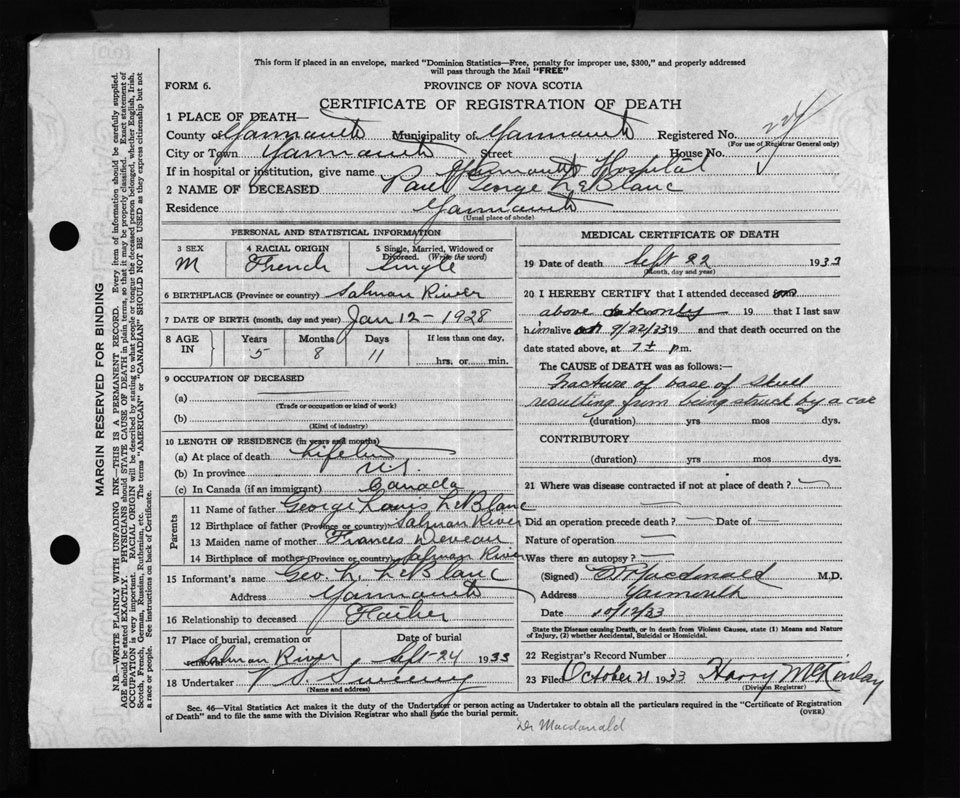 This form if placed in an envelope, marked "Dominion Statistics—Free, penalty for improper use, $300," and properly addressed
will pass through the Mail "FREE"
FORM 6.
PROVINCE OF NOVA SCOTIA
CERTIFICATE OF REGISTRATION OF DEATH
1 PLACE OF DEATH—
County of Yarmouth Municipality of Yarmouth Registered No.
(For use of Registrar General only)
City or Town Yarmouth Street House No.
If in hospital or institution, give name Yarmouth Hospital
2 NAME OF DECEASED Paul George LeBlanc
Residence Yarmouth
(Usual place of abode)
PERSONAL AND STATISTICAL INFORMATION
3 SEX M
4 RACIAL ORIGIN French
5 Single, Married, Widowed or Divorced. (Write the word) Single
6 BIRTHPLACE (Province or country) Salmon River
7 DATE OF BIRTH (month, day and year) Jan 12 - 1928
8 AGE IN Years 5 Months 8 Days 11 If less than one day, hrs. or min.
9 OCCUPATION OF DECEASED
(a)
(Trade or occupation or kind of work)
(b)
(Kind of industry)
10 LENGTH OF RESIDENCE (in years and months)
(a) At place of death Lifetime
(b) In province N.S.
(c) In Canada (if an immigrant) Canada
Parents
11 Name of father George Louis LeBlanc
12 Birthplace of father (Province or country) Salmon River
13 Maiden name of mother Frances Deveau
14 Birthplace of mother (Province or country) Salmon River
15 Informant's name Geo. L. LeBlanc
Address Yarmouth
16 Relationship to deceased Father
17 Place of burial, cremation or removal Salmon River
Date of burial Sept-24 1933
18 Undertaker V S Sweeny
(Name and address)
MEDICAL CERTIFICATE OF DEATH
19 Date of death Sept 22 1933
(Month, day and year)
20 I HEREBY CERTIFY that I attended deceased
above 19 that I last saw
him alive on 9/22/33 19 and that death occurred on
date stated above, at 7± pm.
The CAUSE of DEATH was as follows:—
Fracture of base of Skull
resulting from being struck by a car
(duration) yrs mos dys.
CONTRIBUTORY
(duration) yrs mos dys.
21 Where was disease contracted if not at place of death?
Did an operation precede death? Date of
Nature of operation
Was there an autopsy?
(Signed) Macdonald M.D.
Address Yarmouth
Date 10/12/33
State the Disease causing Death, or in death from Violent Causes, state (1) Means and Nature
of Injury, (2) whether Accidental, Suicidal or Homicidal.
22 Registrar's Record Number
23 Filed October 21 1933 Harry McKinlay
(Division Registrar)
Sec. 46—Vital Statistics Act makes it the duty of the Undertaker or person acting as Undertaker to obtain all the particulars required in the "Certificate of Registration
of Death" and to file the same with the Division Registrar who shall issue the burial permit.
(OVER)
Dr Macdonald
MARGIN RESERVED FOR BINDING
N.B.—WRITE PLAINLY WITH UNFADING INK—THIS IS A PERMANENT RECORD. Every item of information should be carefully supplied.
AGE should be stated EXACTLY. PHYSICIANS should STATE CAUSE OF DEATH in plain terms, so that it may be properly classified. Exact statement of
OCCUPATION is very important. RACIAL ORIGIN will be described by stating to what people or tongue the deceased person belonged, whether English, Irish,
Scotch, French, German, Russian, Ruthenian, etc. The terms "AMERICAN" or "CANADIAN" SHOULD NOT BE USED as they express citizenship but not
a race or people. See instructions on back of Certificate.